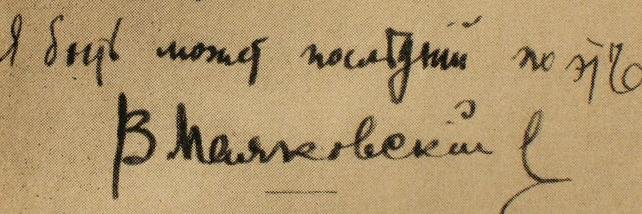 Я быть может последний поэтъ
В Маяковский